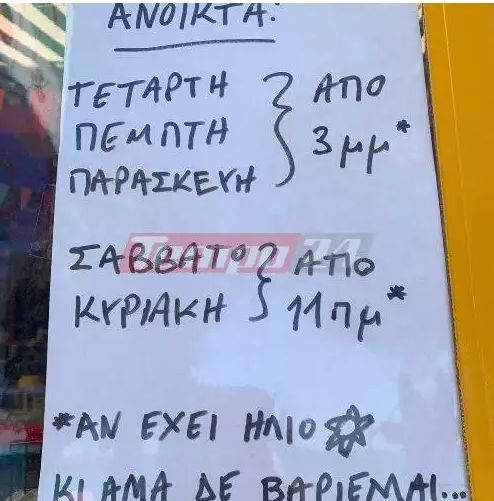 ΑΝΟΙΚΤΑ:
ΤΕΤΑΡΤΗ
ΠΕΜΠΤΗ
ΠΑΡΑΣΚΕΥΗ
ΑΠΟ
3 μμ*
ΣΑΒΒΑΤΟ
ΚΥΡΙΑΚΗ
ΑΠΟ
11πμ*
*ΑΝ ΕΧΕΙ ΗΛΙΟ
ΚΙ ΑΜΑ ΔΕ ΒΑΡΙΕΜΑΙ...